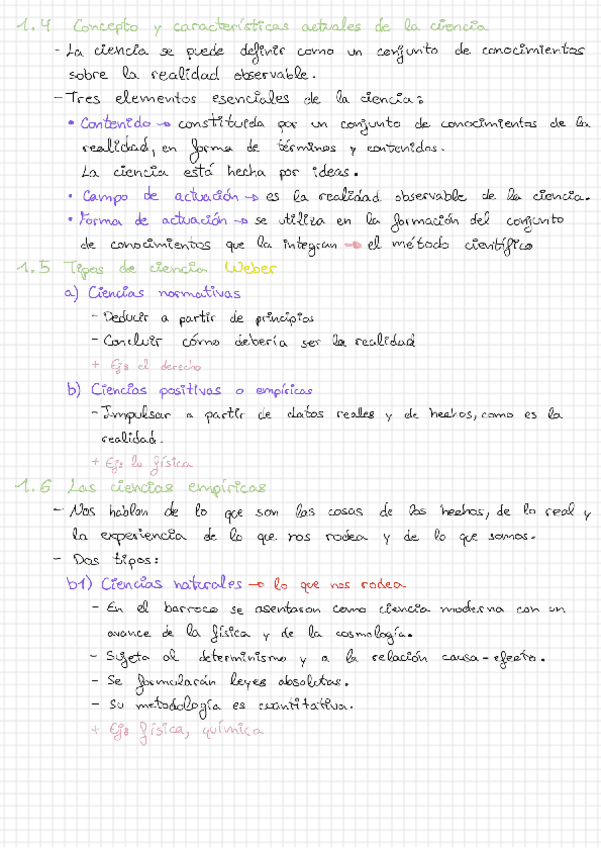 1.4 Concepto y características actuales de la ciencia
- La ciencia se puede definir como un conjunto de conocimientos
sobre la realidad observable.
- Tres elementos esenciales de la ciencia:
• Contenido → constituida por un conjunto de conocimientos de la
realidad, en forma de términos y contenidos.
La ciencia está hecha por ideas.
• Campo de actuación → es la realidad observable de la ciencia.
• Forma de actuación → se utiliza en la formación del conjunto
de conocimientos que la integran → el método científico
1.5 Tipos de ciencia Weber
a) Ciencias normativas
- Deducir a partir de principios
- Concluir cómo debería ser la realidad
+ Ej: el derecho
b) Ciencias positivas o empíricas
- Impulsar a partir de datos reales y de hechos, como es la
realidad.
+ Ej: la física
1.6 Las ciencias empíricas
- Nos hablan de lo que son las cosas de los hechos, de lo real y
la experiencia de lo que nos rodea y de lo que somos.
- Dos tipos:
b1) Ciencias naturales → lo que nos rodea
- En el barroco se asentaron como ciencia moderna con un
avance de la física y de la cosmología.
- Sujeta al determinismo y a la relación causa-efecto.
- Se formularán leyes absolutas.
- Su metodología es cuantitativa.
+ Ej: física, química